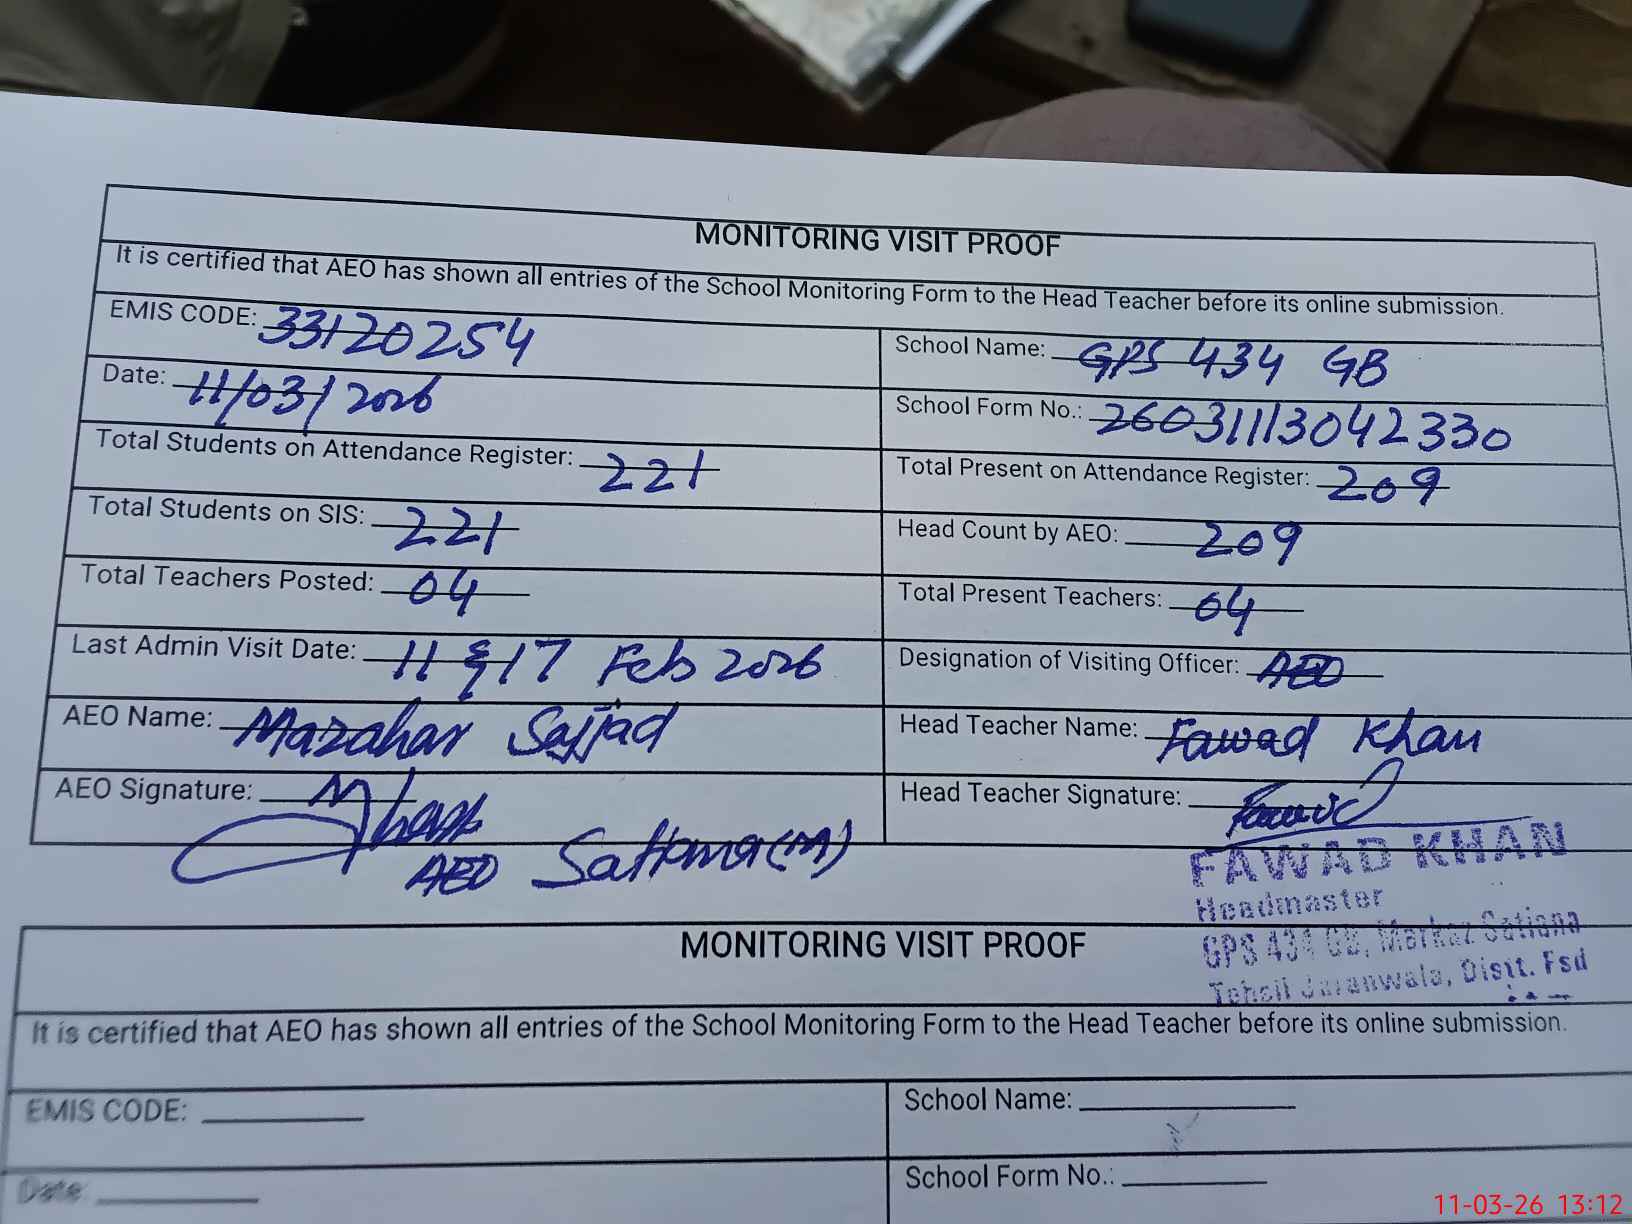 MONITORING VISIT PROOF
It is certified that AEO has shown all entries of the School Monitoring Form to the Head Teacher before its online submission.
EMIS CODE: 33120254
School Name: GPS 434 GB
Date: 11/03/2026
School Form No.: 26031113042330
Total Students on Attendance Register: 221
Total Present on Attendance Register: 209
Total Students on SIS: 221
Head Count by AEO: 209
Total Teachers Posted: 04
Total Present Teachers: 04
Last Admin Visit Date: 11 & 17 Feb 2026
Designation of Visiting Officer: AEO
AEO Name: Mazahar Sajjad
Head Teacher Name: Fawad Khan
AEO Signature:
Head Teacher Signature: Fawad
AEO (M)
FAWAD KHAN
Headmaster
GPS 434 GB, Markaz Satiana
Tehsil Jaranwala, Distt. Fsd
MONITORING VISIT PROOF
It is certified that AEO has shown all entries of the School Monitoring Form to the Head Teacher before its online submission.
EMIS CODE:
School Name:
Date:
School Form No.:
11-03-26 13:12